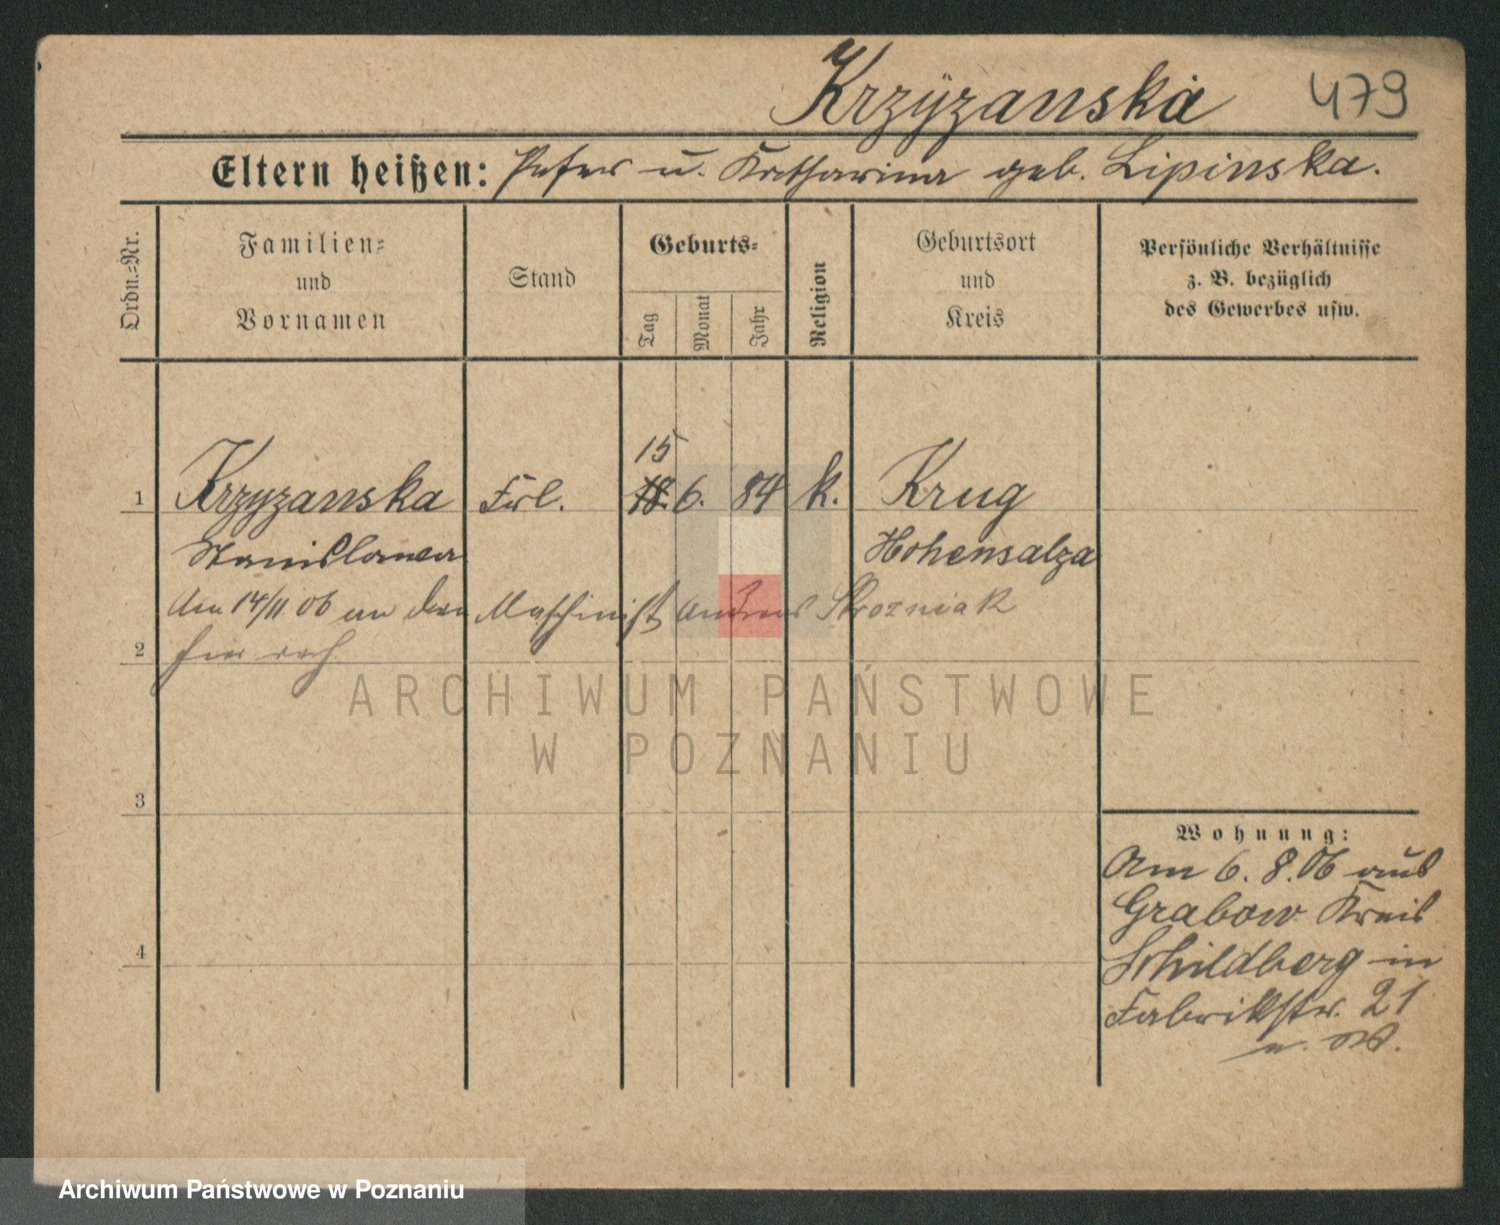 Krzÿzanska 479
Eltern heißen: Peter u. Katharina geb. Lipinska.
Ordn.-Nr.
Familien-
und
Vornamen
Stand
Geburts-
Tag
Monat
Jahr
Religion
Geburtsort
und
Kreis
Persönliche Verhältnisse
z. B. bezüglich
des Gewerbes usw.
15
1 Krzyzanska Frl. 18. 6. 84 k. Krug
Stanislawa Hohensalza
14/11 06 an den Maschinist Andreas Skrozniak
2 hier
ARCHIWUM PAŃSTWOWE
W POZNANIU
3
4
Wohnung:
Am 6. 8. 06 aus
Grabow Kreis
Schildberg in
Fabrikstr. 21
Archiwum Państwowe w Poznaniu